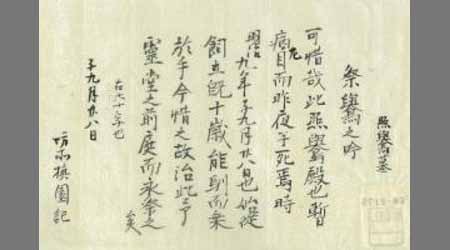 照鷽墓
祭鷽之吟
可惜哉此照鷽殿也暫
病目而昨夜予死焉時
明治九年子九月廿八日也始従
飼立既十歳能馴而乗
於手今惜之故治此予
靈堂之前庭而永祭之矣
右六十字也
子九月廿八日
槙園記